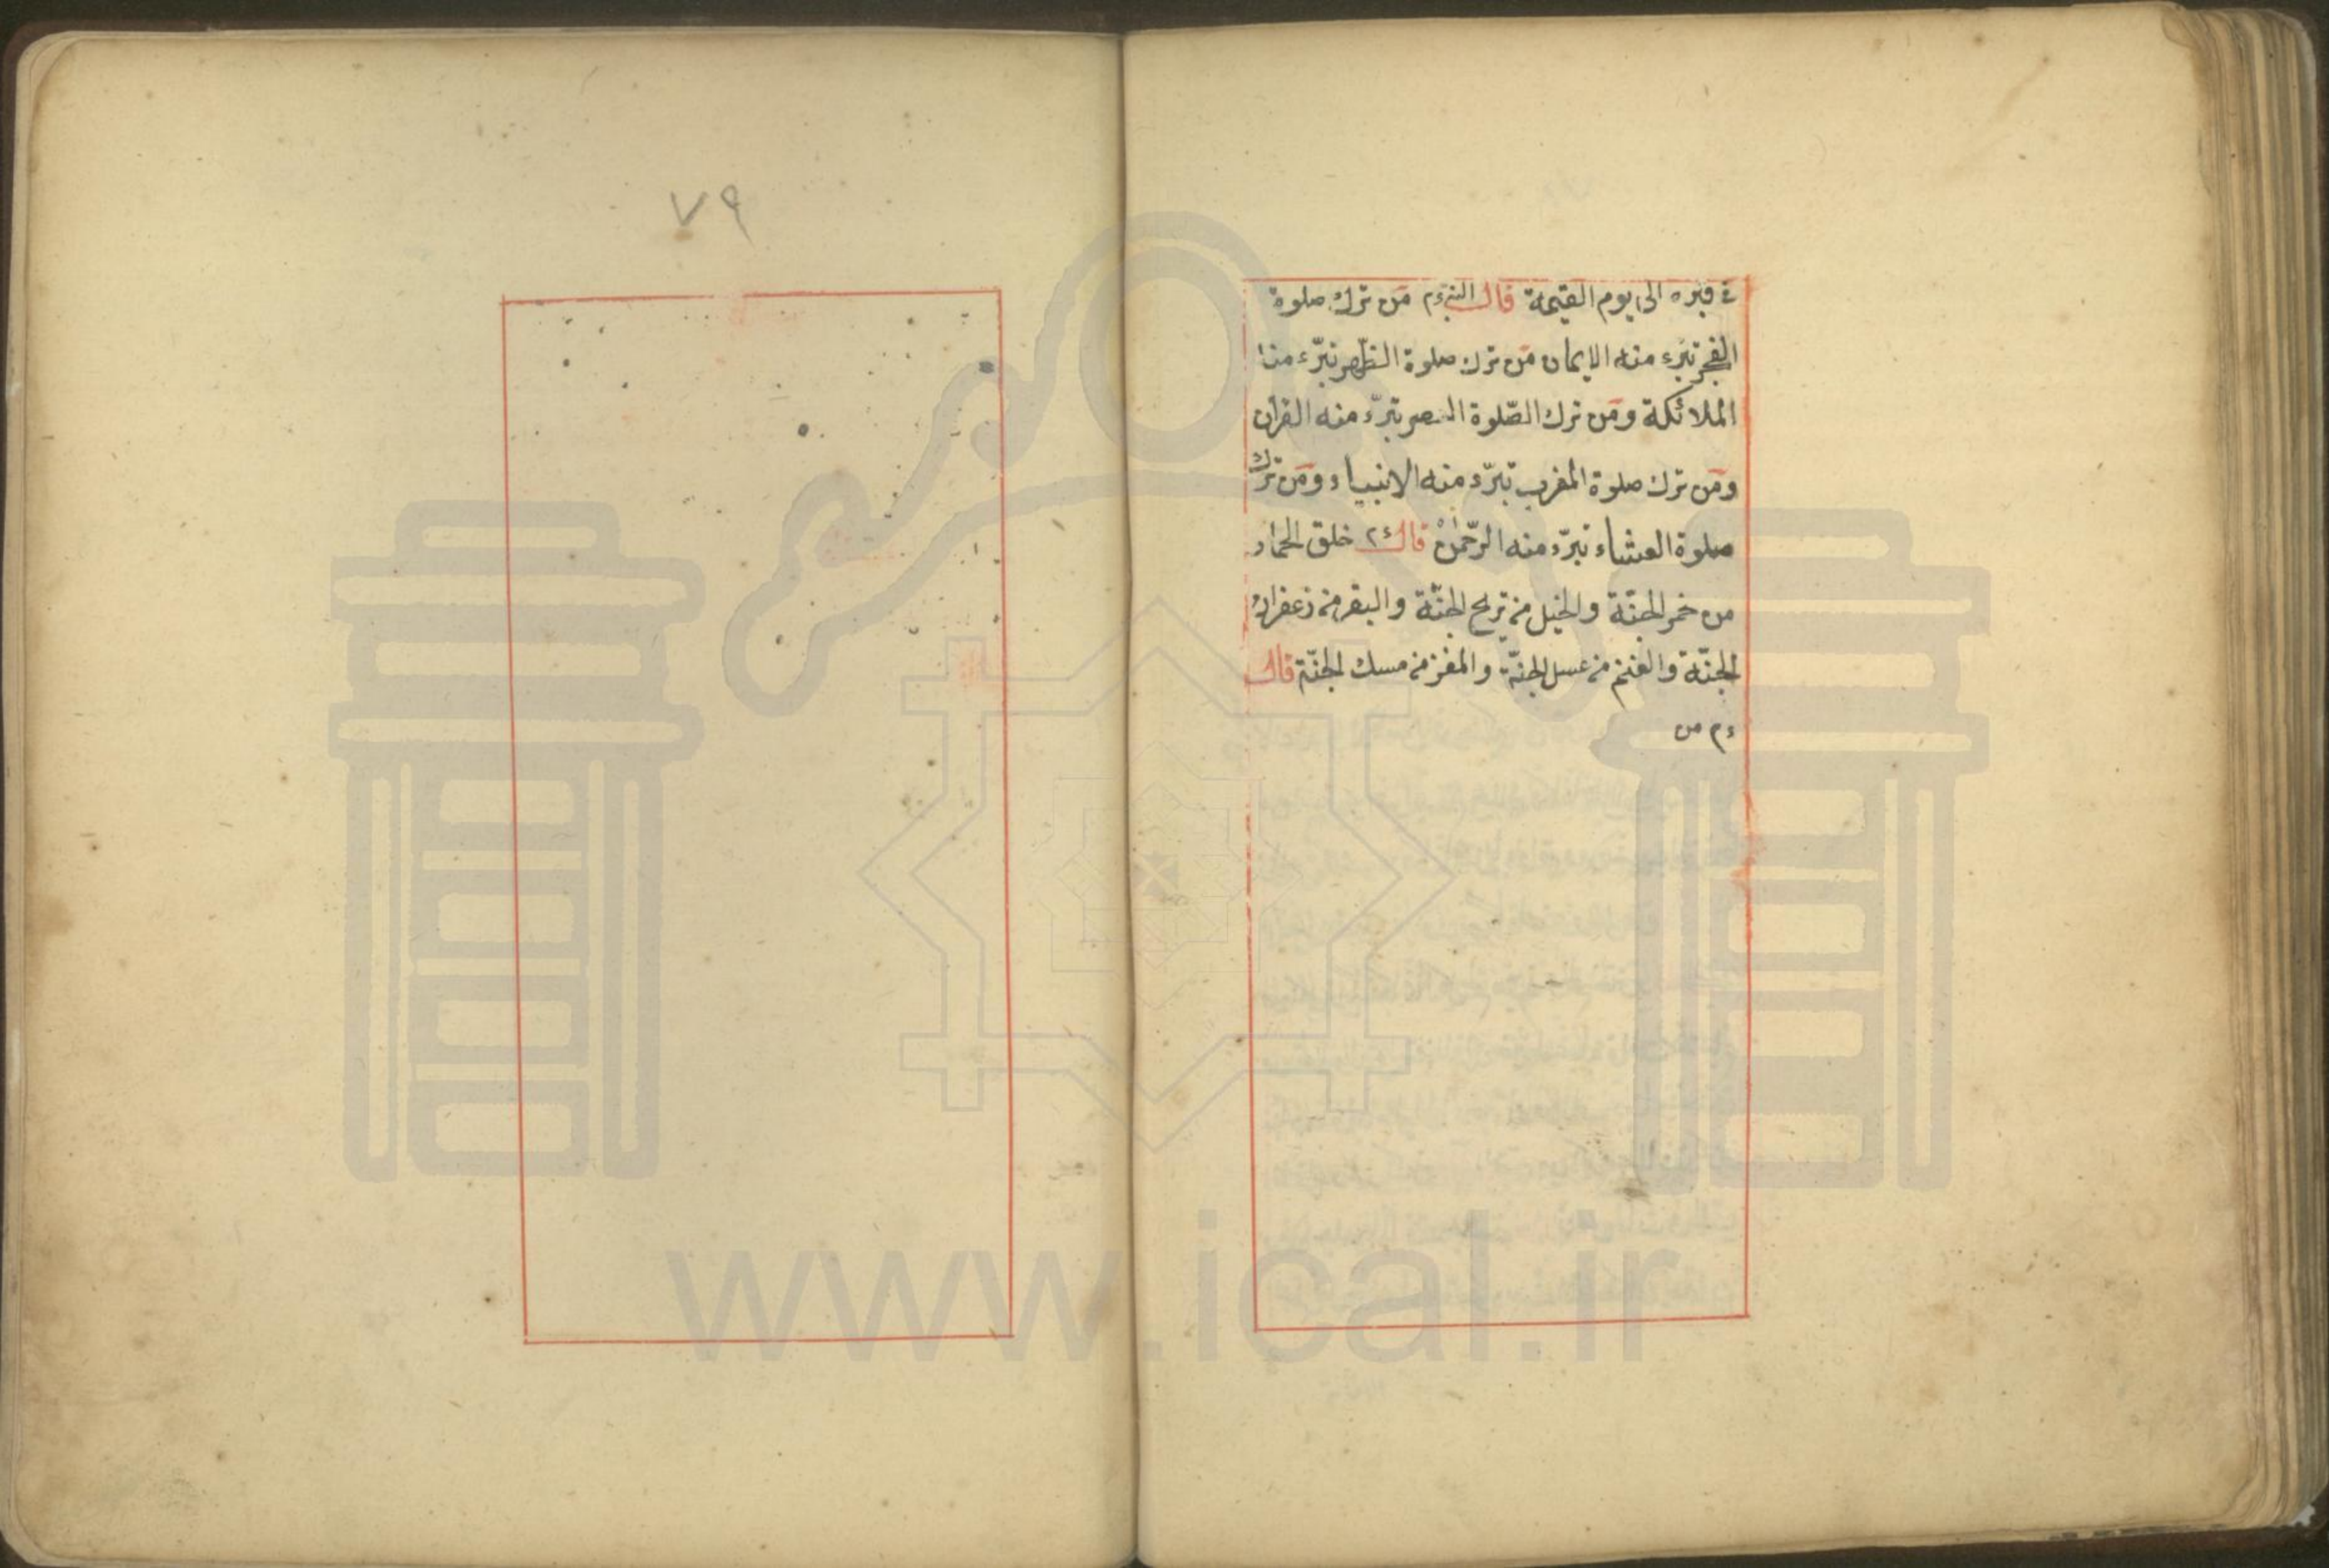 في قبره الى يوم القيمة قال النبي ءم من ترك صلوة
الفجر تبرء منه الايمان من ترك صلوة الظهر تبرّء منه
الملائكة ومن ترك الصّلوة العصر تبرّء منه القران
ومن ترك صلوة المغرب تبرّء منه الانبياء ومن ترك
صلوة العشاء تبرّء منه الرّحمن قال ءم خلق الحمار
من خمر الجنّة والخيل من تريح الجنّة والبقر من زعفران
الجنّة والغنم من عسل الجنّة والمغز من مسك الجنّة قال
ءم من
٧٩
www.ical.ir